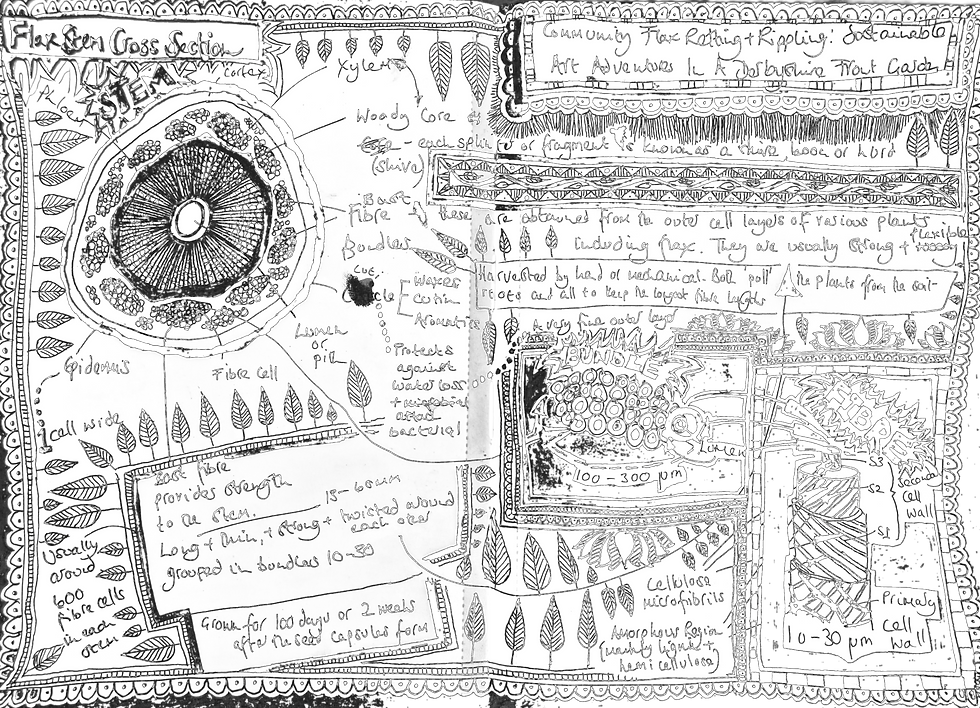 Flax Stem Cross Section
Community Flax Retting + Rippling: Sustainable
Art Adventures In A Derbyshire Front Garden
STEM
Cortex
Xylem
Woody Core
- each splinter or fragment is known as a shive, boon or
(shive)
Bast
Fibre
Bundles
these are obtained from the outer cell layers of various plants
including flax. They are usually strong + flexible
Harvested by hand or mechanical. Both pull the plants from the soil
roots and all to keep the longest fibre lengths
Cuticle
Waxes
Cutin
Aromatics
A very fine outer layer
Protects
against
water loss
+ microbial
attack
bacterial
Lumen
or
pith
Epidermis
Fibre Cell
1 cell wide
BUNDLE
Lumen
100-300 µm
FIBRE
S3
S2
S1
Secondary
Cell
Wall
Primary
Cell
Wall
10-30 µm
Bast fibre
provides strength
to the stem.
15-60mm
Long + thin, + strong + twisted around
each other
grouped in bundles 10-30
Grown for 100 days or 2 weeks
after the seed capsules form
Usually
around
600
fibre cells
in each
stem
Cellulose
microfibrils
Amorphous Region
(mainly lignin +
hemicellulose)